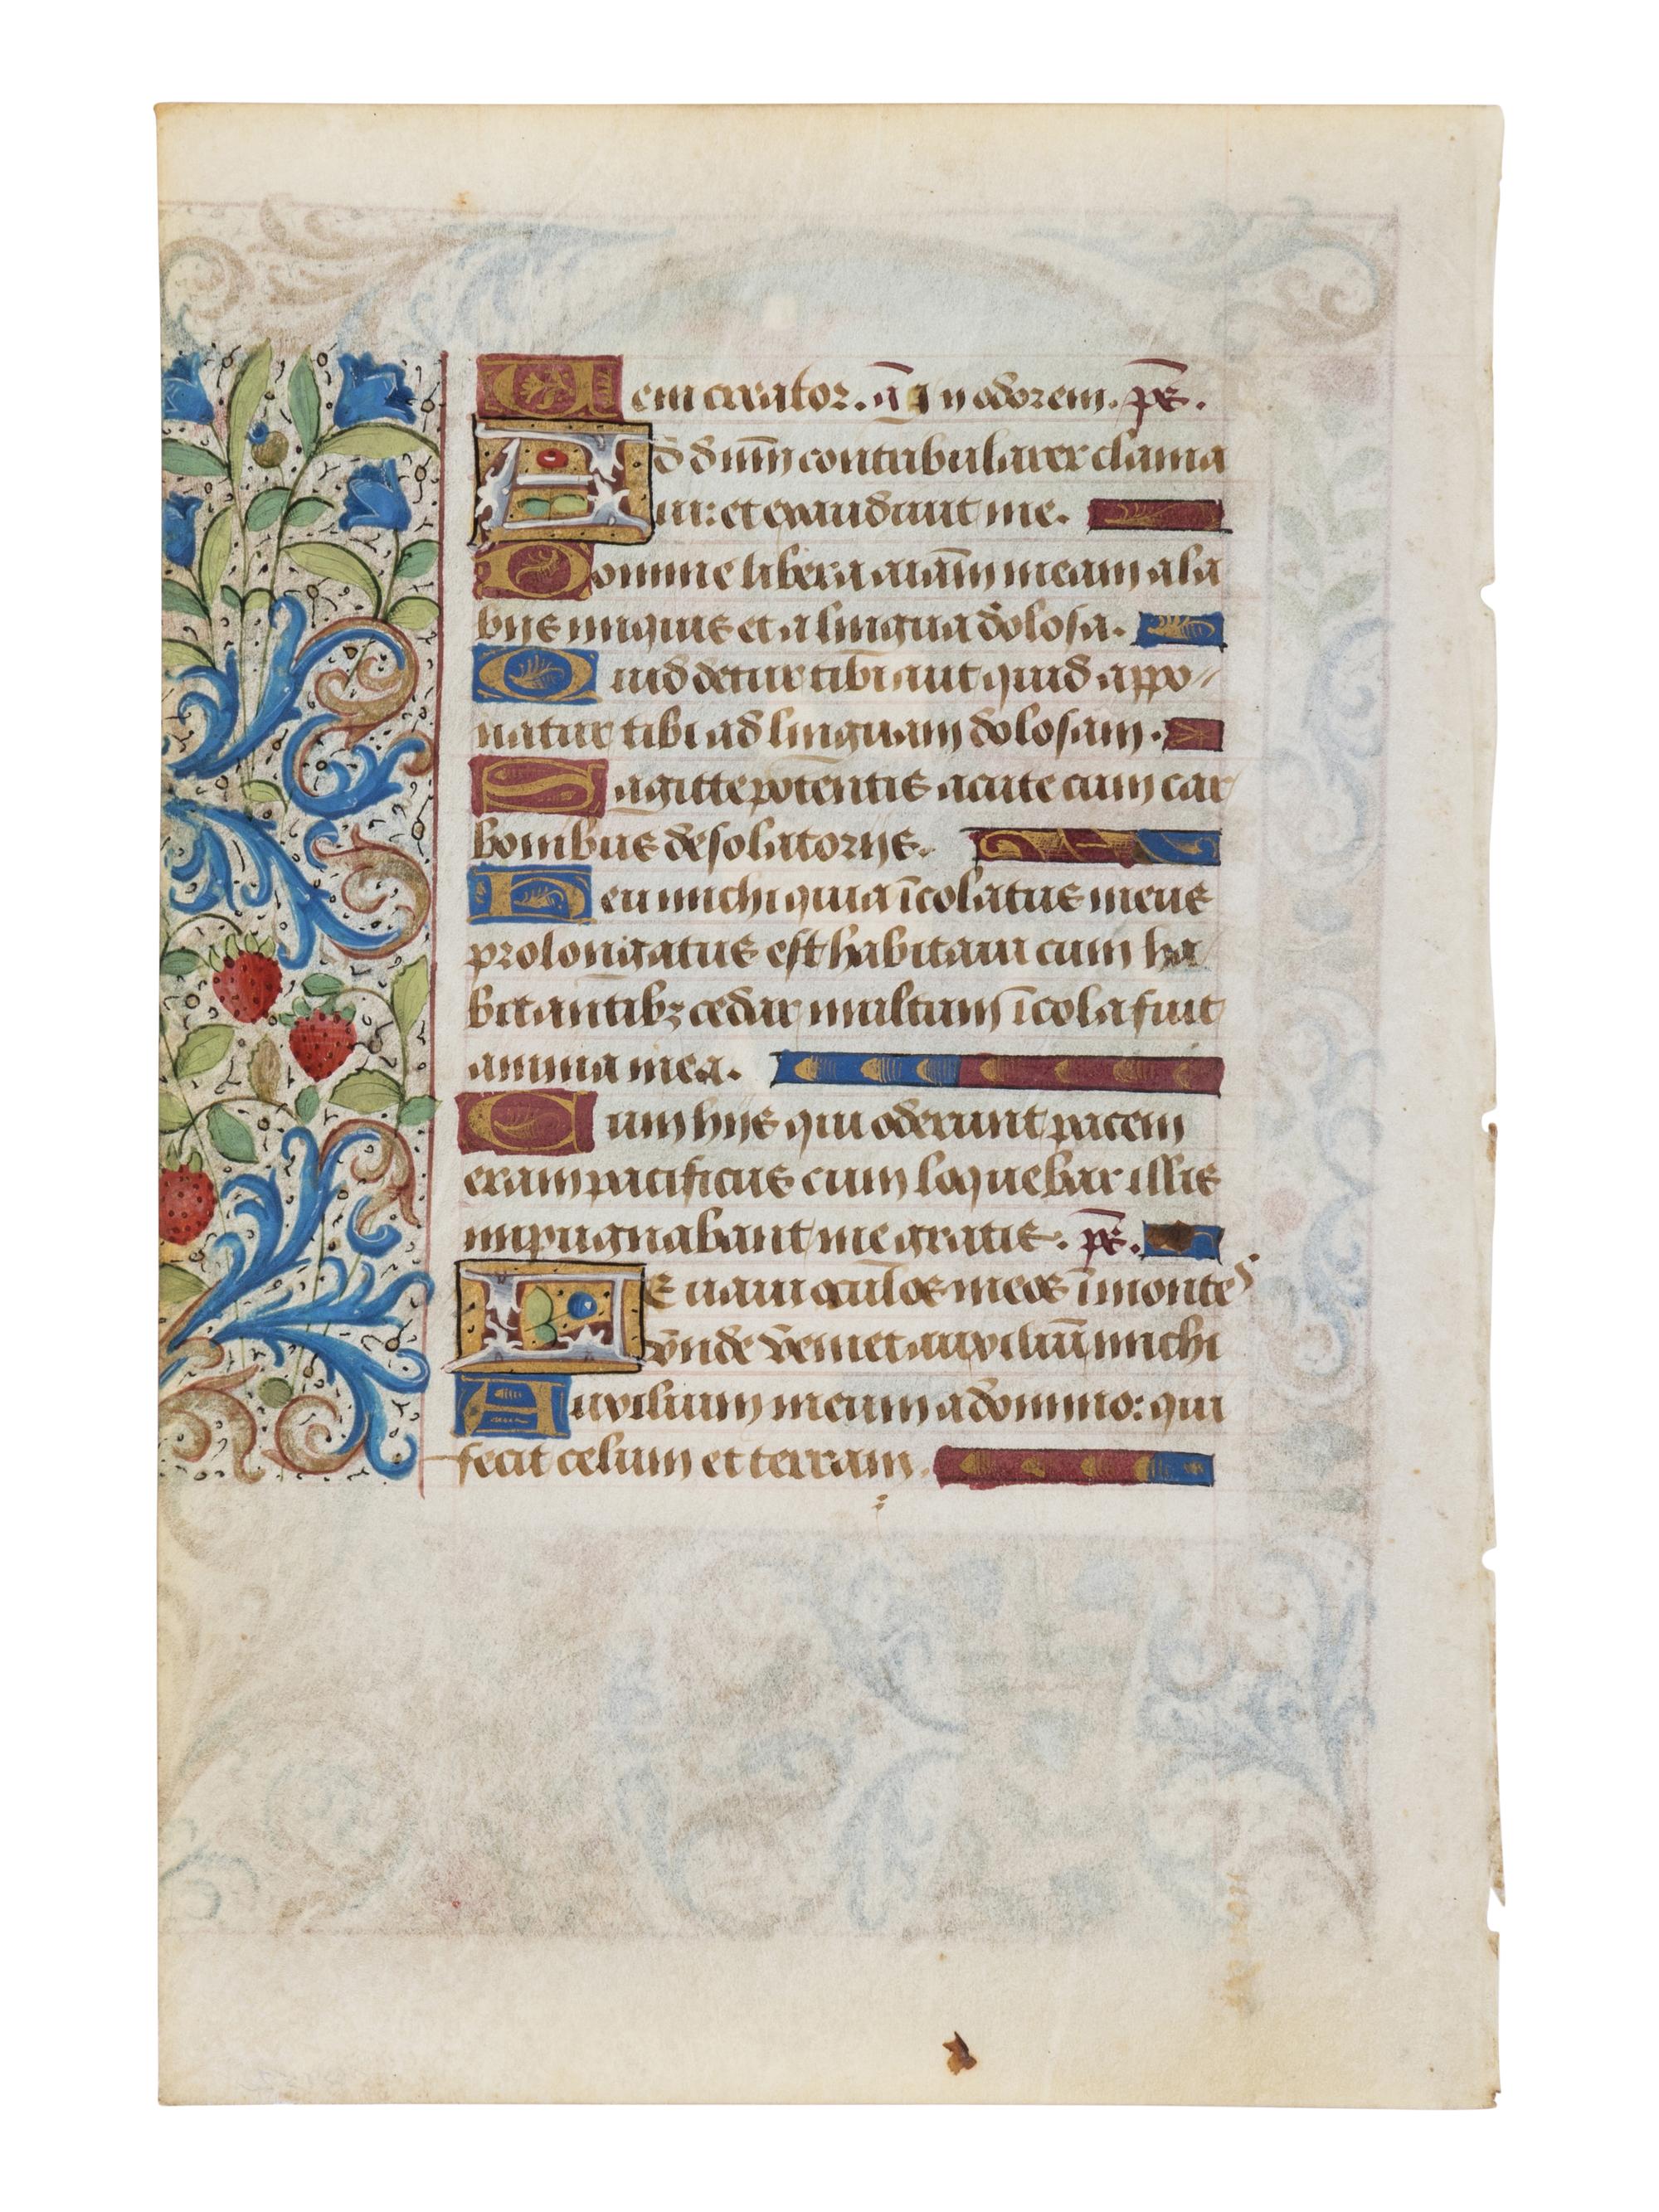 Ueni creator. an̄ In odorem. ps̄.
Ad dn̄m contribularer clama
ui: et exaudiuit me.
Domine libera aīam meam a la
biis iniquis et a lingua dolosa.
Quid detur tibi aut quid appo〃
natur tibi ad linguam dolosam.
Sagitte potentis acute cum car
bonibus desolatoriis.
Heu michi quia īcolatus meus
prolongatus est habitaui cum ha
bitantibꝫ cedar multum īcola fuit
anima mea.
Cum hiis qui oderunt pacem
eram pacificus cum loquebar illis
impugnabant me gratis. ps̄.
Leuaui oculos meos ī montes
vnde veniet auxiliū michi
Auxilium meum a domino: qui
fecit celum et terram.